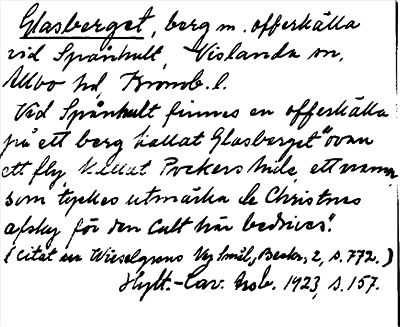 Glasberget, berg m. offerkälla
vid Spånhult, Vislanda sn,
Allbo hd, Kronob. l.
Vid Spånhult finnes en offerkälla
på ett berg kallat Glasberget "ovan
ett fly kallat Pockers hule, ett namn,
som tyckes utmärka de Christnas
afsky för den Cult här bedrives".
(citat ur Wieselgrens Ny Smål. Beskr., 2, s. 772.)
Hylt.-Cav. 1923, s. 157.